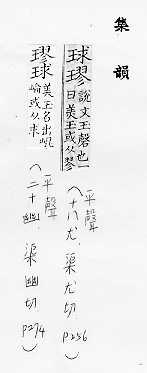 集韻
球璆 說文玉磬也一曰美玉或从翏
（平聲 十八尤．渠尤切 P256）
璆球 美玉名出崐崙或从求
（平聲 二十幽．渠幽切 P274）